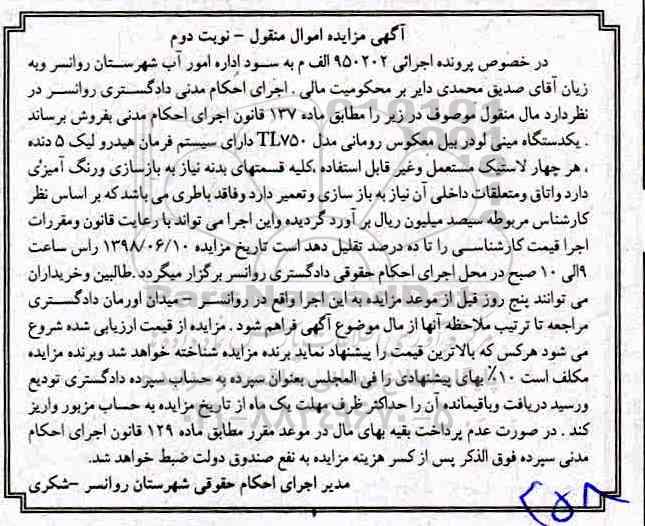 آگهی مزایده اموال منقول - نوبت دوم
در خصوص پرونده اجرائی ۹۵۰۲۰۲ الف م به سود اداره امور آب شهرستان روانسر وبه
زیان آقای صدیق محمدی دایر بر محکومیت مالی . اجرای احکام مدنی دادگستری روانسر در
نظردارد مال منقول موصوف در زیر را مطابق ماده ۱۳۷ قانون اجرای احکام مدنی بفروش برساند
. یکدستگاه مینی لودر بیل معکوس رومانی مدل TL۷۵۰ دارای سیستم فرمان هیدرو لیک ۵ دنده
، هر چهار لاستیک مستعمل وغیر قابل استفاده ،کلیه قسمتهای بدنه نیاز به بازسازی ورنگ آمیزی
دارد واتاق ومتعلقات داخلی آن نیاز به باز سازی وتعمیر دارد وفاقد باطری می باشد که بر اساس نظر
کارشناس مربوطه سیصد میلیون ریال بر آورد گردیده واین اجرا می تواند با رعایت قانون ومقررات
اجرا قیمت کارشناسی را تا ده درصد تقلیل دهد است تاریخ مزایده ۱۳۹۸/۰۶/۱۰ راس ساعت
۹الی ۱۰ صبح در محل اجرای احکام حقوقی دادگستری روانسر برگزار میگردد .طالبین وخریداران
می توانند پنج روز قبل از موعد مزایده به این اجرا واقع در روانسر -میدان اورمان دادگستری
مراجعه تا ترتیب ملاحظه آنها از مال موضوع آگهی فراهم شود . مزایده از قیمت ارزیابی شده شروع
می شود هرکس که بالاترین قیمت را پیشنهاد نماید برنده مزایده شناخته خواهد شد وبرنده مزایده
مکلف است ۱۰٪ بهای پیشنهادی را فی المجلس بعنوان سپرده به حساب سپرده دادگستری تودیع
ورسید دریافت وباقیمانده آن را حداکثر ظرف مهلت یک ماه از تاریخ مزایده به حساب مزبور واریز
کند . در صورت عدم پرداخت بقیه بهای مال در موعد مقرر مطابق ماده ۱۲۹ قانون اجرای احکام
مدنی سپرده فوق الذکر پس از کسر هزینه مزایده به نفع صندوق دولت ضبط خواهد شد.
مدیر اجرای احکام حقوقی شهرستان روانسر -شکری
۲۵۸